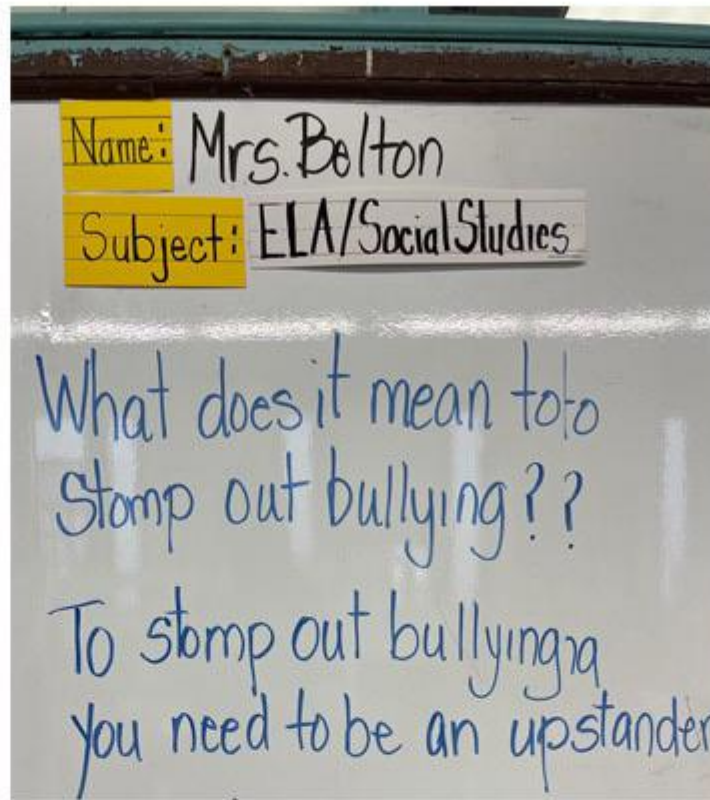 Name: Mrs. Belton
Subject: ELA/Social Studies
What does it mean to to
Stomp out bullying??
To stomp out bullying
you need to be an upstander